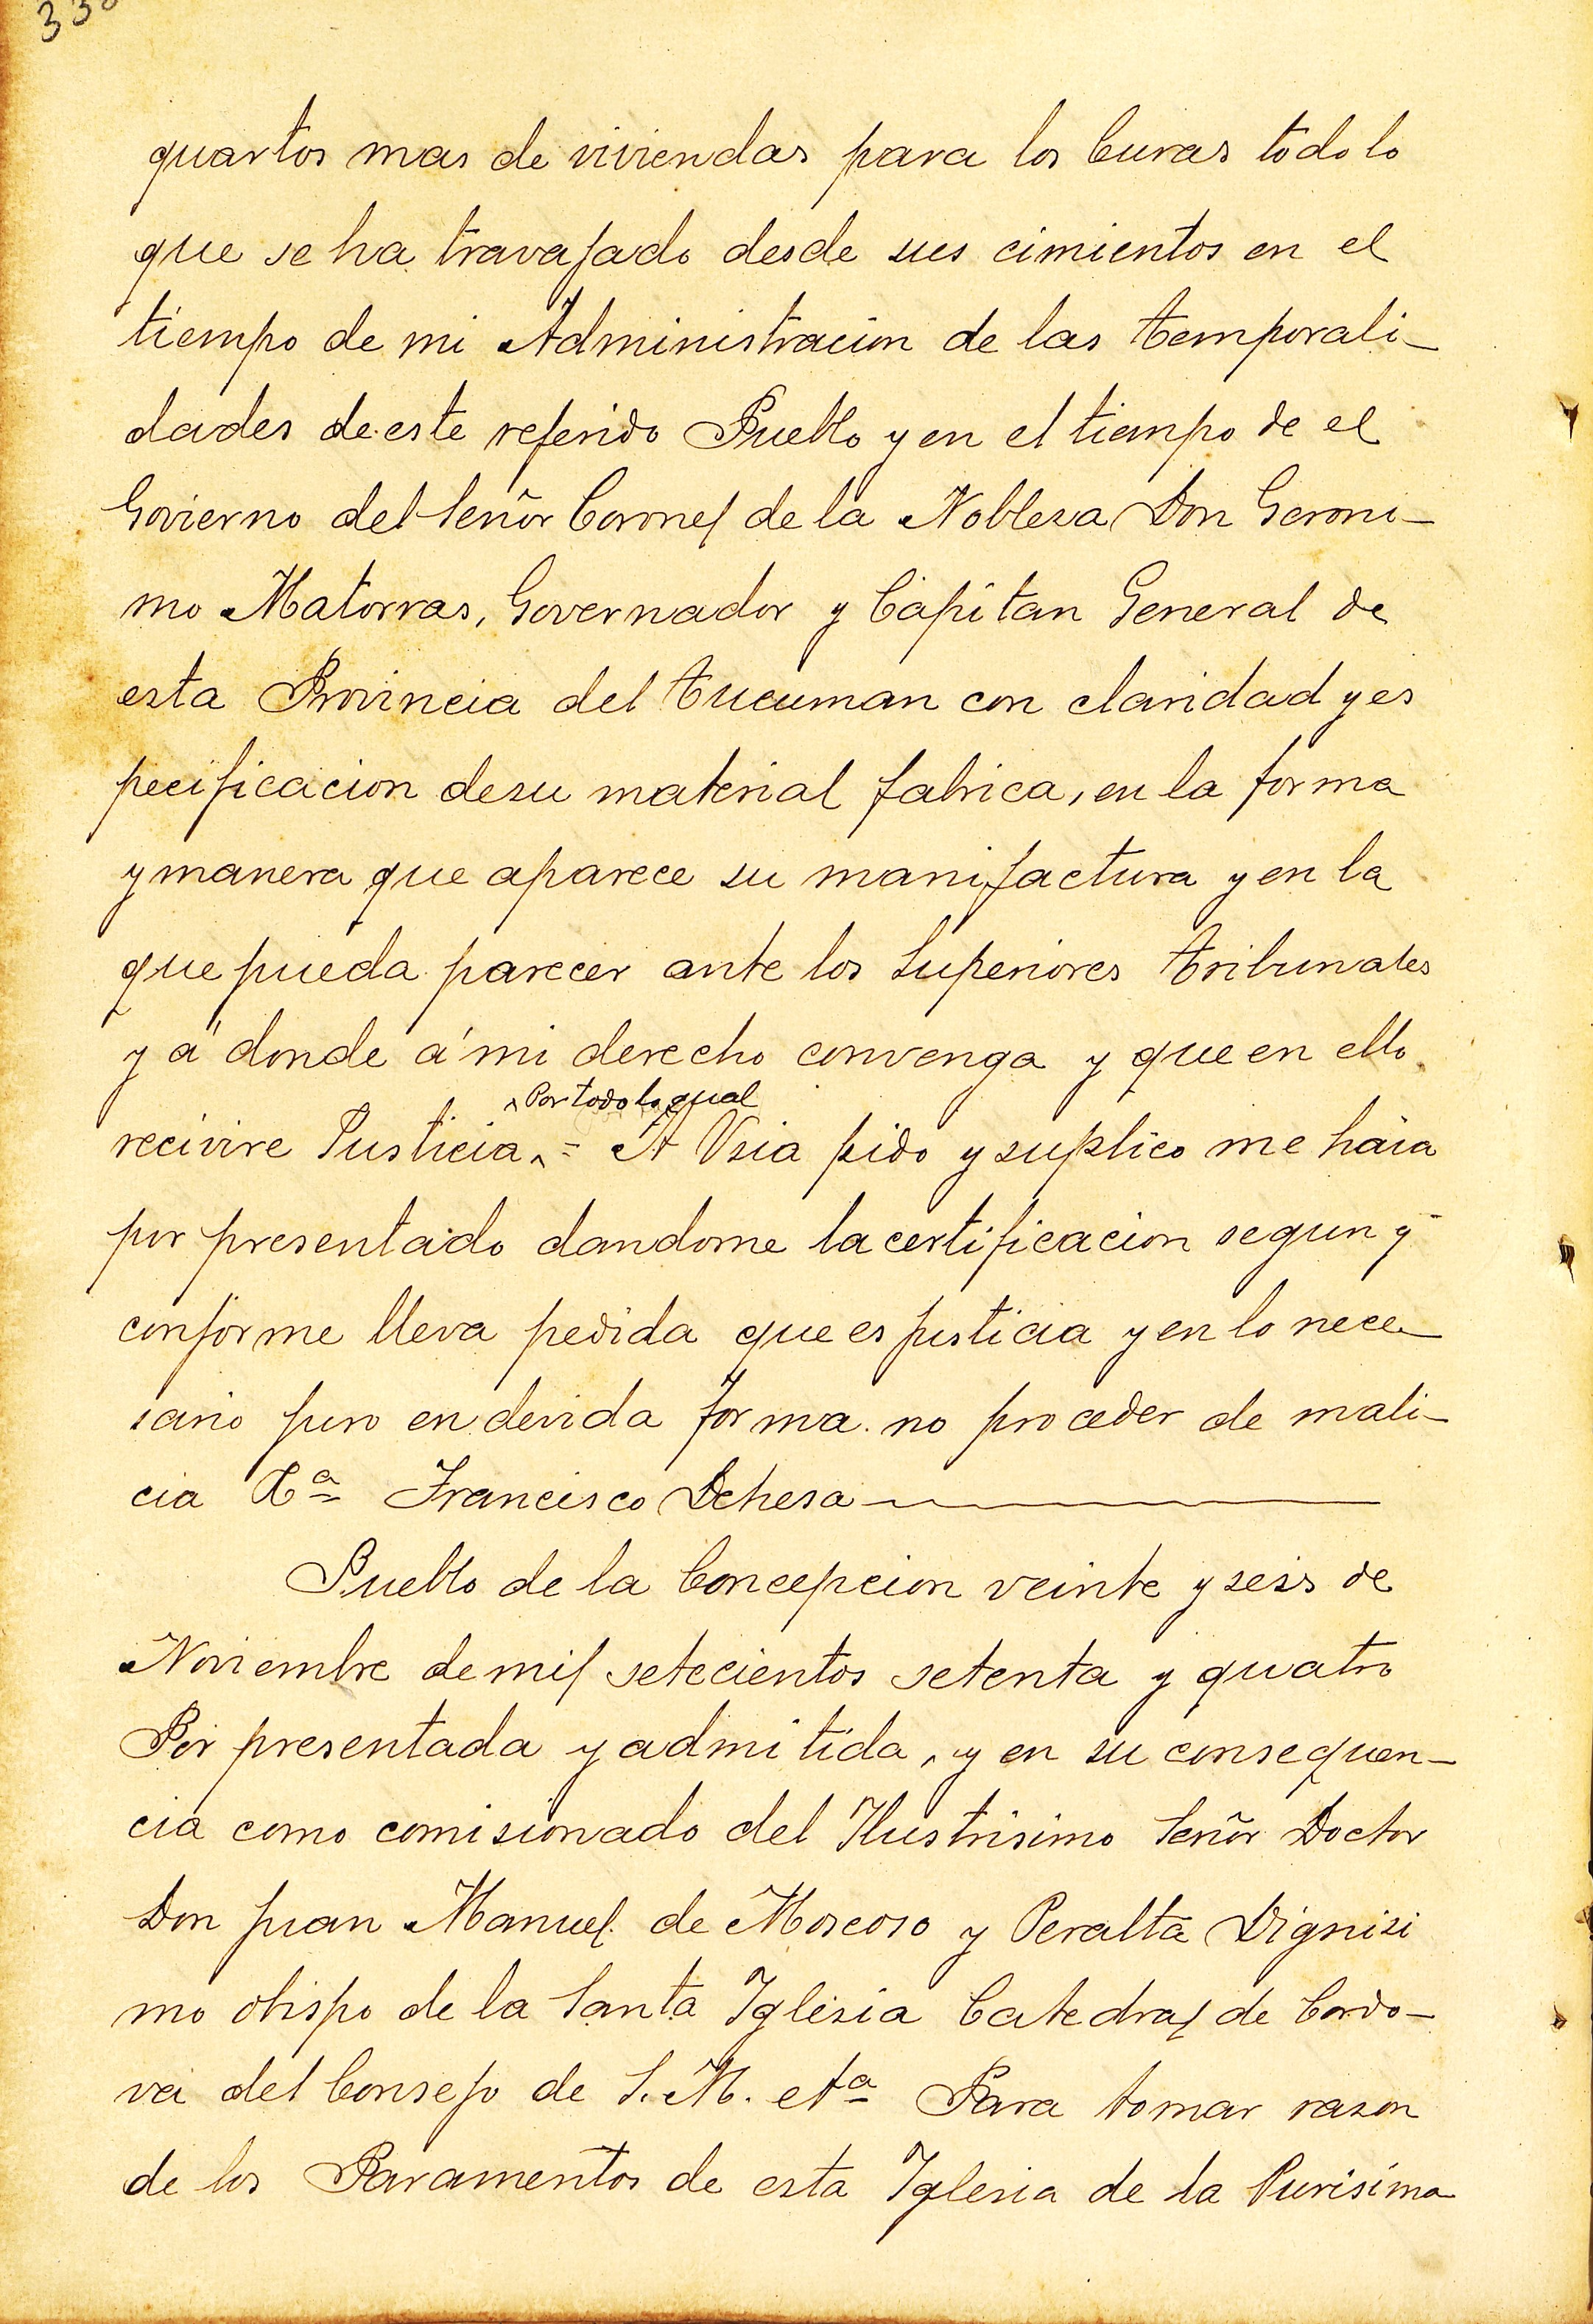 quartos mas de viviendas para los Curas todo lo
que se ha travajado desde sus cimientos en el
tiempo de mi Administracion de las temporali-
dades de este referido Pueblo y en el tiempo de el
Govierno del Señor Coronel de la Noblesa Don Geroni-
mo Matorras, Governador y Capitan General de
esta Provincia del Tucuman con claridad y es
pecificacion de su material fabrica, en la forma
y manera que aparece su manifactura y en la
que pueda parecer ante los Superiores tribunales
y á donde á mi derecho convenga y que en ello
^ Por todo lo qual
recivire Justicia ^ = A Vsia pido y suplico me haia
por presentado dandome la certificacion segun y
conforme lleva pedida que es justicia y en lo nece-
sario juro en devida forma no proceder de mali-
cia &ª Francisco Dehesa
Pueblo de la Concepcion veinte y seis de
Noviembre de mil setecientos setenta y quatro
Por presentada y admitida, y en su consequen-
cia como comisionado del Ilustrisimo Señor Doctor
Don Juan Manuel de Moscoso y Peralta Dignisi
mo obispo de la Santa Iglesia Catedral de Cordo-
va del Consejo de S. M. etª Para tomar rason
de los Paramentos de esta Iglesia de la Purisima